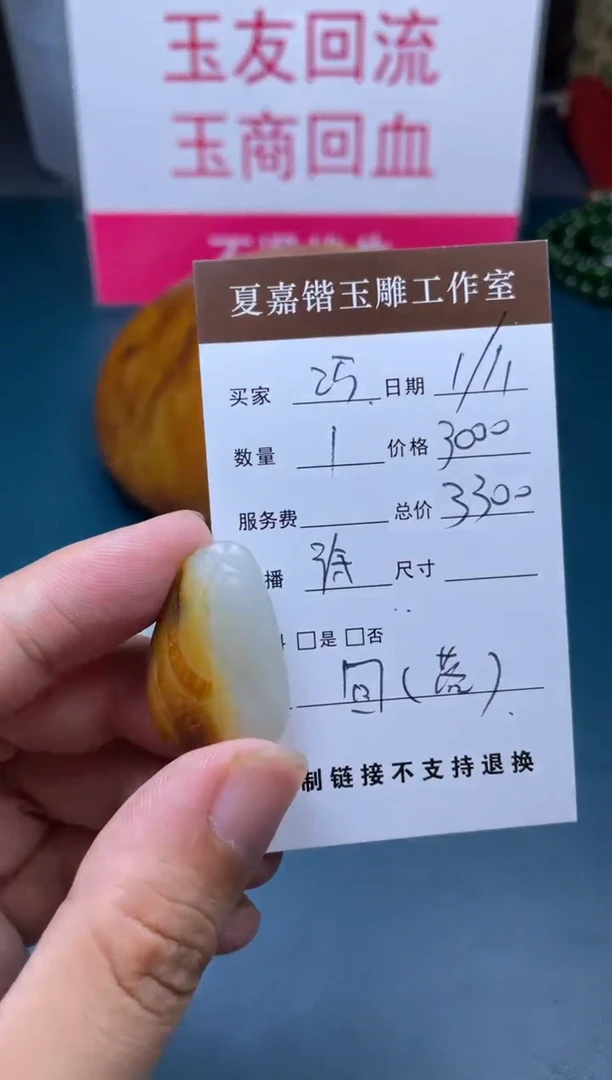 玉友回流
玉商回血
夏嘉锴玉雕工作室
买家 日期 1/11
数量 1 价格 3000
服务费 总价 3300
播 徐 尺寸
□是 □否
回(
制链接不支持退换